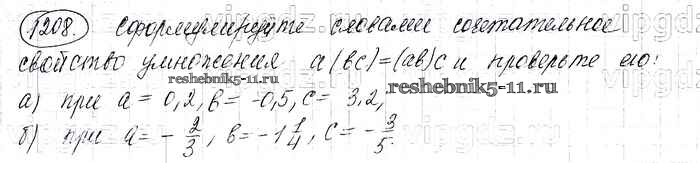 1208. Сформулируйте словами сочетательное
свойство умножения a(bc)=(ab)c и проверьте его:
reshebnik5-11.ru
reshebnik5-11.ru
а) при a = 0,2, b = -0,5, c = 3,2,
б) при a = - 2/3, b = -1 1/4, c = - 3/5.